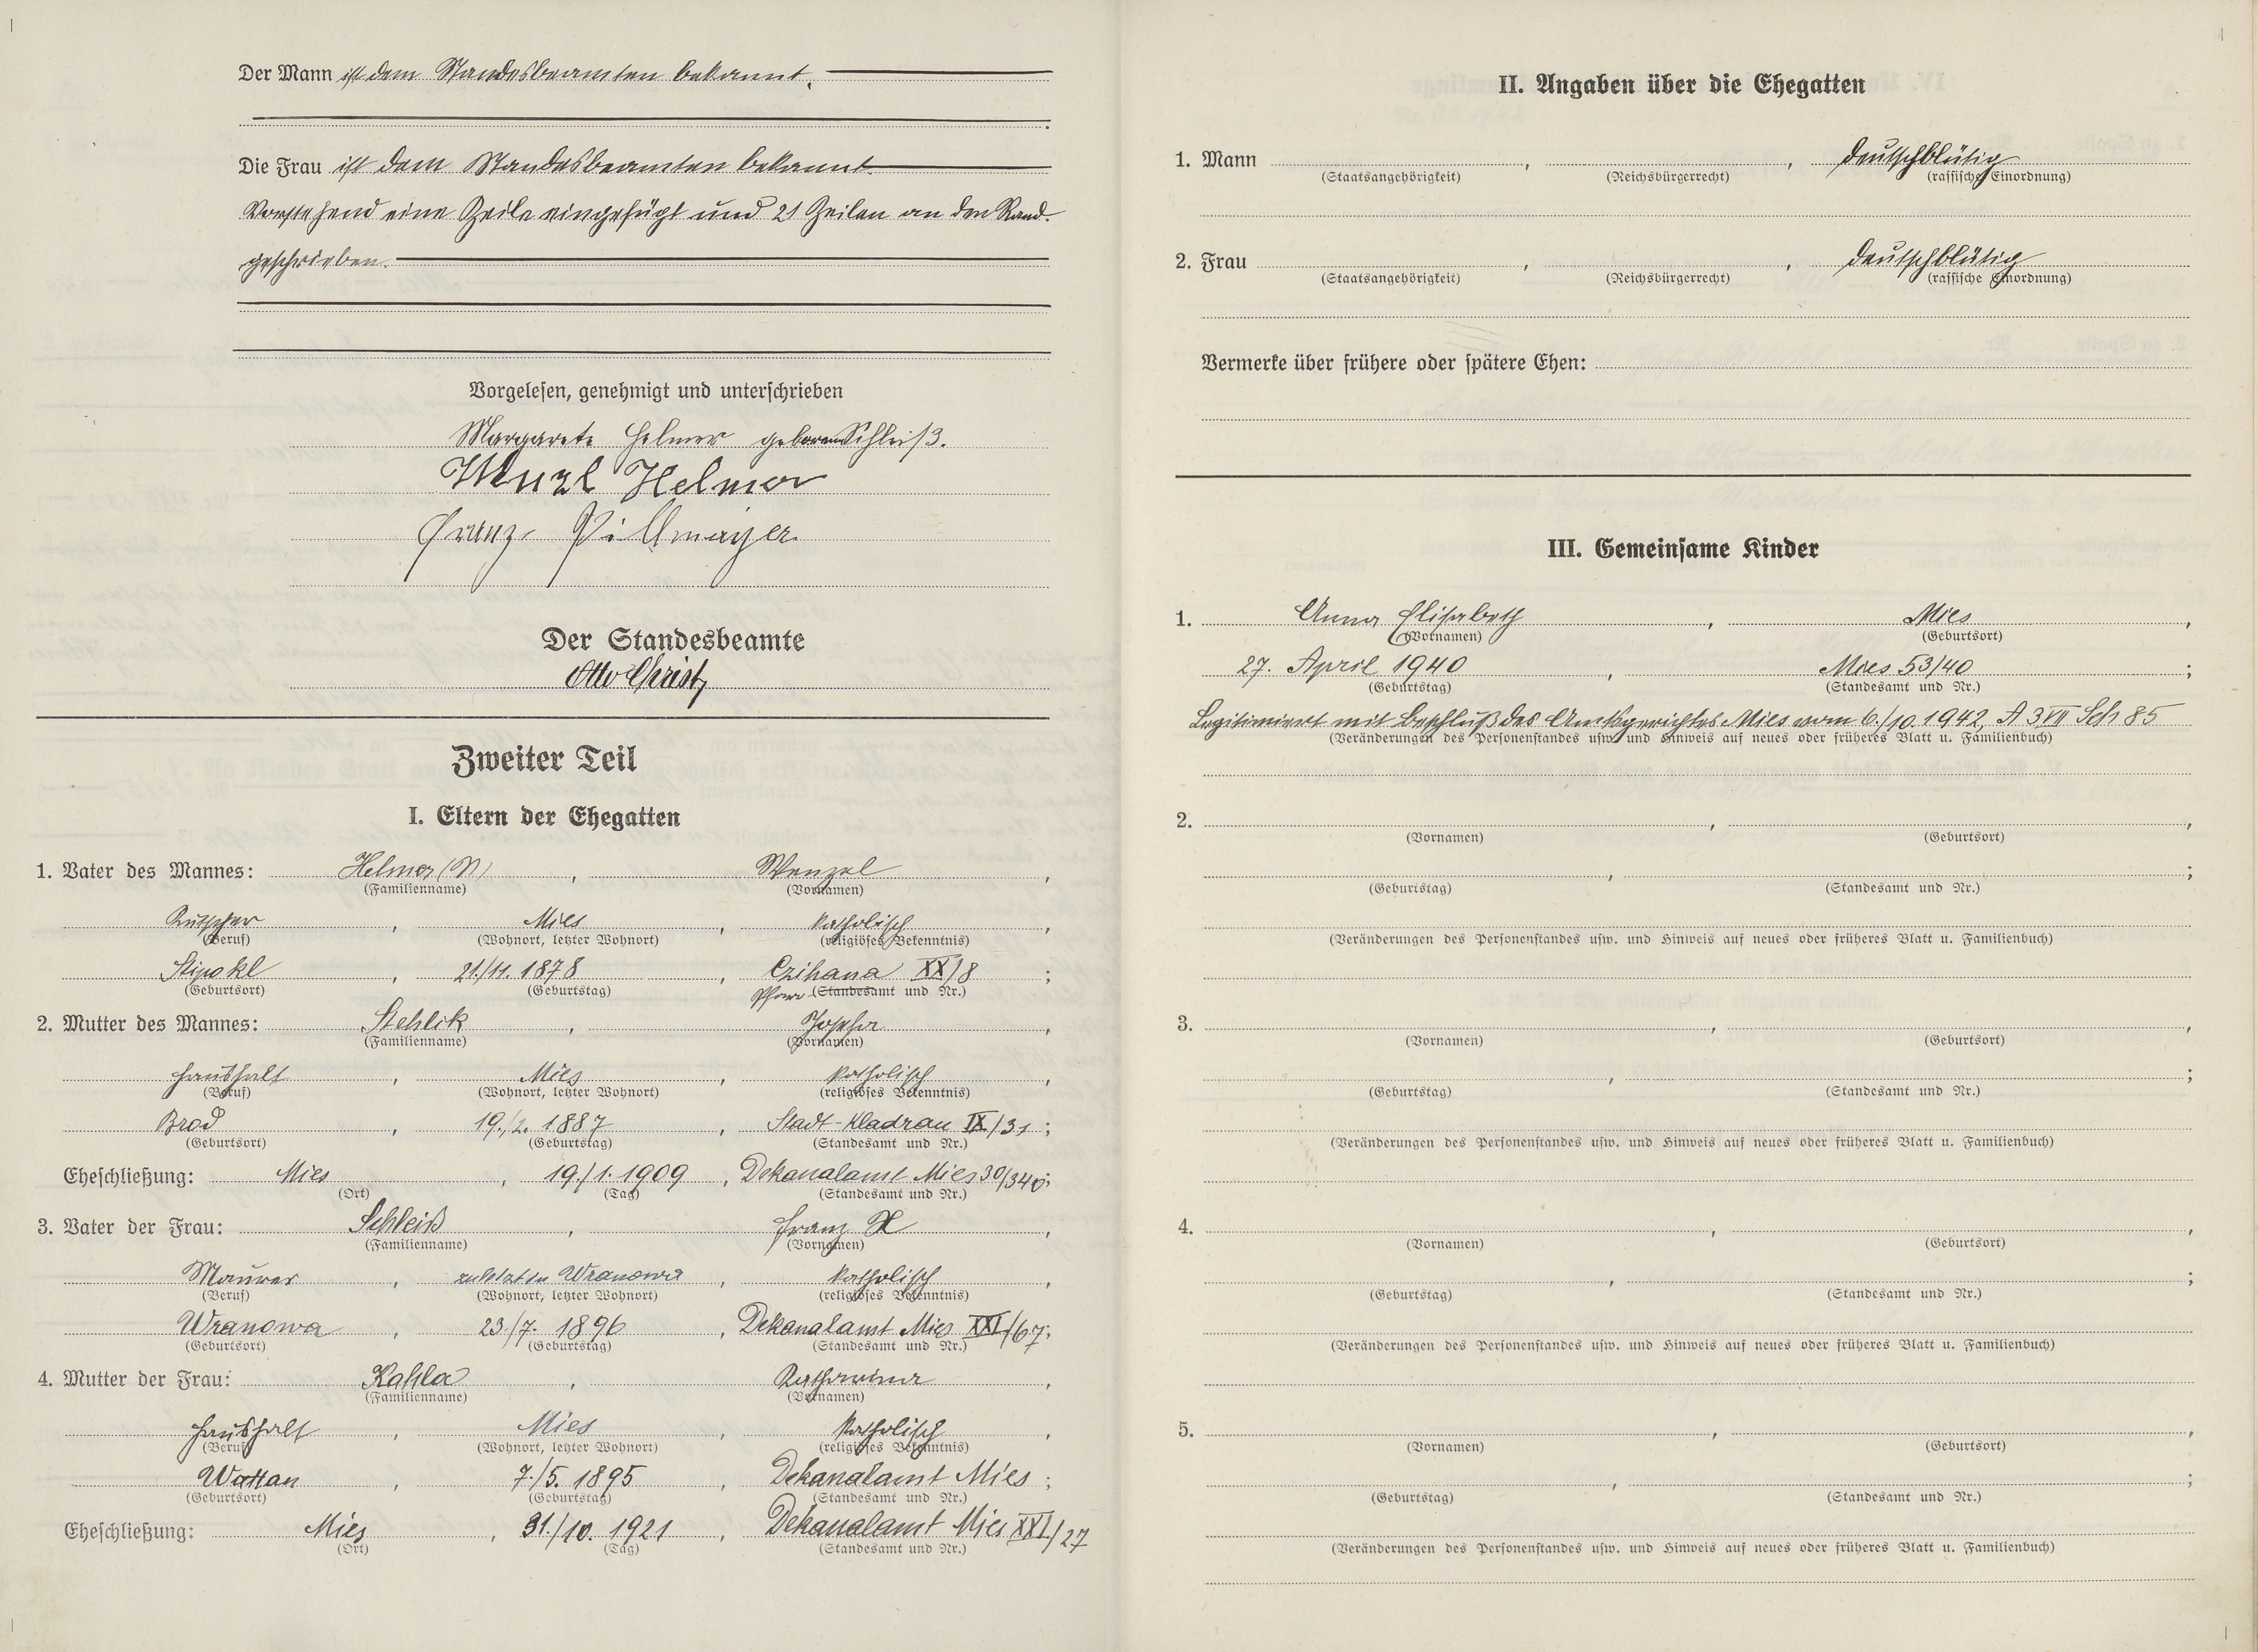 Der Mann ist dem Standesbeamten bekannt.
Die Frau ist dem Standesbeamten bekannt
Vorstehend eine Zeile eingefügt und 21 Zeilen an den Rand
geschrieben.
Vorgelesen, genehmigt und unterschrieben
Margarete Helmer geborene Schleiß.
Wenzl Helmer
Franz Pillmayer
Der Standesbeamte
Otto Christ
Zweiter Teil
I. Eltern der Ehegatten
1. Vater des Mannes: Helmer (N), Wenzel,
(Familienname) (Vornamen)
Kutscher, Mies, katholisch,
(Beruf) (Wohnort, letzter Wohnort) (religiöses Bekenntnis)
Stipokl, 21./11. 1878, Czihana XX/8;
(Geburtsort) (Geburtstag) Pfarr (Standesamt und Nr.)
2. Mutter des Mannes: Stehlik, Josefa,
(Familienname) (Vornamen)
Haushalt, Mies, katholisch,
(Beruf) (Wohnort, letzter Wohnort) (religiöses Bekenntnis)
Brod, 19./2. 1887, Stadt-Kladrau IX/31;
(Geburtsort) (Geburtstag) (Standesamt und Nr.)
Eheschließung: Mies, 19./1. 1909, Dekanalamt Mies 30/340;
(Ort) (Tag) (Standesamt und Nr.)
3. Vater der Frau: Schleiß, Franz X,
(Familienname) (Vornamen)
Maurer, zuletzt in Wranowa, katholisch,
(Beruf) (Wohnort, letzter Wohnort) (religiöses Bekenntnis)
Wranowa, 23./7. 1896, Dekanalamt Mies XXI/67;
(Geburtsort) (Geburtstag) (Standesamt und Nr.)
4. Mutter der Frau: Kahla, Katharina,
(Familienname) (Vornamen)
Haushalt, Mies, katholisch,
(Beruf) (Wohnort, letzter Wohnort) (religiöses Bekenntnis)
Wuttau, 7./5. 1895, Dekanalamt Mies;
(Geburtsort) (Geburtstag) (Standesamt und Nr.)
Eheschließung: Mies, 31./10. 1921, Dekanalamt Mies XXI/27
(Ort) (Tag) (Standesamt und Nr.)
II. Angaben über die Ehegatten
1. Mann , , deutschblütig
(Staatsangehörigkeit) (Reichsbürgerrecht) (rassische Einordnung)
2. Frau , , deutschblütig
(Staatsangehörigkeit) (Reichsbürgerrecht) (rassische Einordnung)
Vermerke über frühere oder spätere Ehen:
III. Gemeinsame Kinder
1. Anna Elisabeth, Mies,
(Vornamen) (Geburtsort)
27. April 1940, Mies 53/40;
(Geburtstag) (Standesamt und Nr.)
Legitimiert mit Beschluß des Amtsgerichtes Mies vom 6./10. 1942, A 3 VII Sch 85
(Veränderungen des Personenstandes usw. und Hinweis auf neues oder früheres Blatt u. Familienbuch)
2. , ,
(Vornamen) (Geburtsort)
, ;
(Geburtstag) (Standesamt und Nr.)
(Veränderungen des Personenstandes usw. und Hinweis auf neues oder früheres Blatt u. Familienbuch)
3. , ,
(Vornamen) (Geburtsort)
, ;
(Geburtstag) (Standesamt und Nr.)
(Veränderungen des Personenstandes usw. und Hinweis auf neues oder früheres Blatt u. Familienbuch)
4. , ,
(Vornamen) (Geburtsort)
, ;
(Geburtstag) (Standesamt und Nr.)
(Veränderungen des Personenstandes usw. und Hinweis auf neues oder früheres Blatt u. Familienbuch)
5. , ,
(Vornamen) (Geburtsort)
, ;
(Geburtstag) (Standesamt und Nr.)
(Veränderungen des Personenstandes usw. und Hinweis auf neues oder früheres Blatt u. Familienbuch)